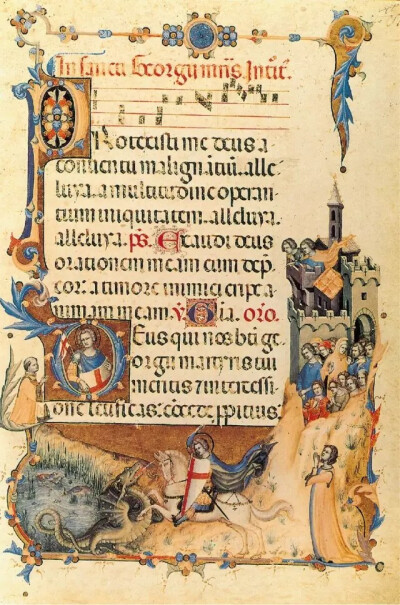 In sancti Georgii mris. Introit.
PRotexisti me deus a
conuentu malignātiū. alle
luya. a multitudine operan
tium iniquitatem. alleluya.
alleluya. ps. Exaudi deus
orationem meam cum dep̄
cor a timore inimici eripe a
nimam meam. V̄. Gl̄a. oro.
Deus qui nos bt̄i ge
orgii martyris tui
meritis ⁊ intercessi
one letificas: cōcede ꝓpitius